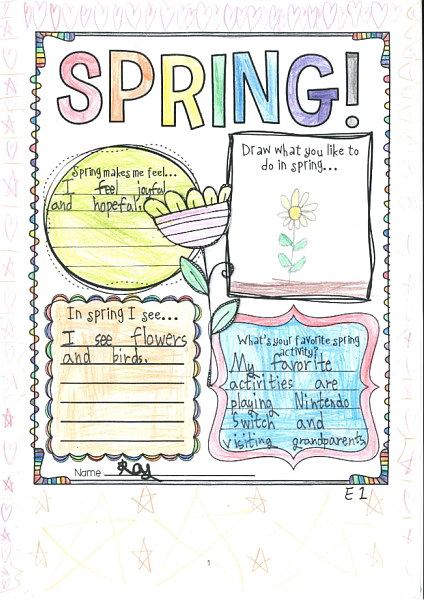 SPRING!
Spring makes me feel...
I feel joyful
and hopeful.
Draw what you like to
do in spring...
In spring I see...
I see flowers
and birds.
What's your favorite spring
activity?
My favorite
activities are
playing Nintendo
Switch and
visiting grandparents
Name Ray
E1
1